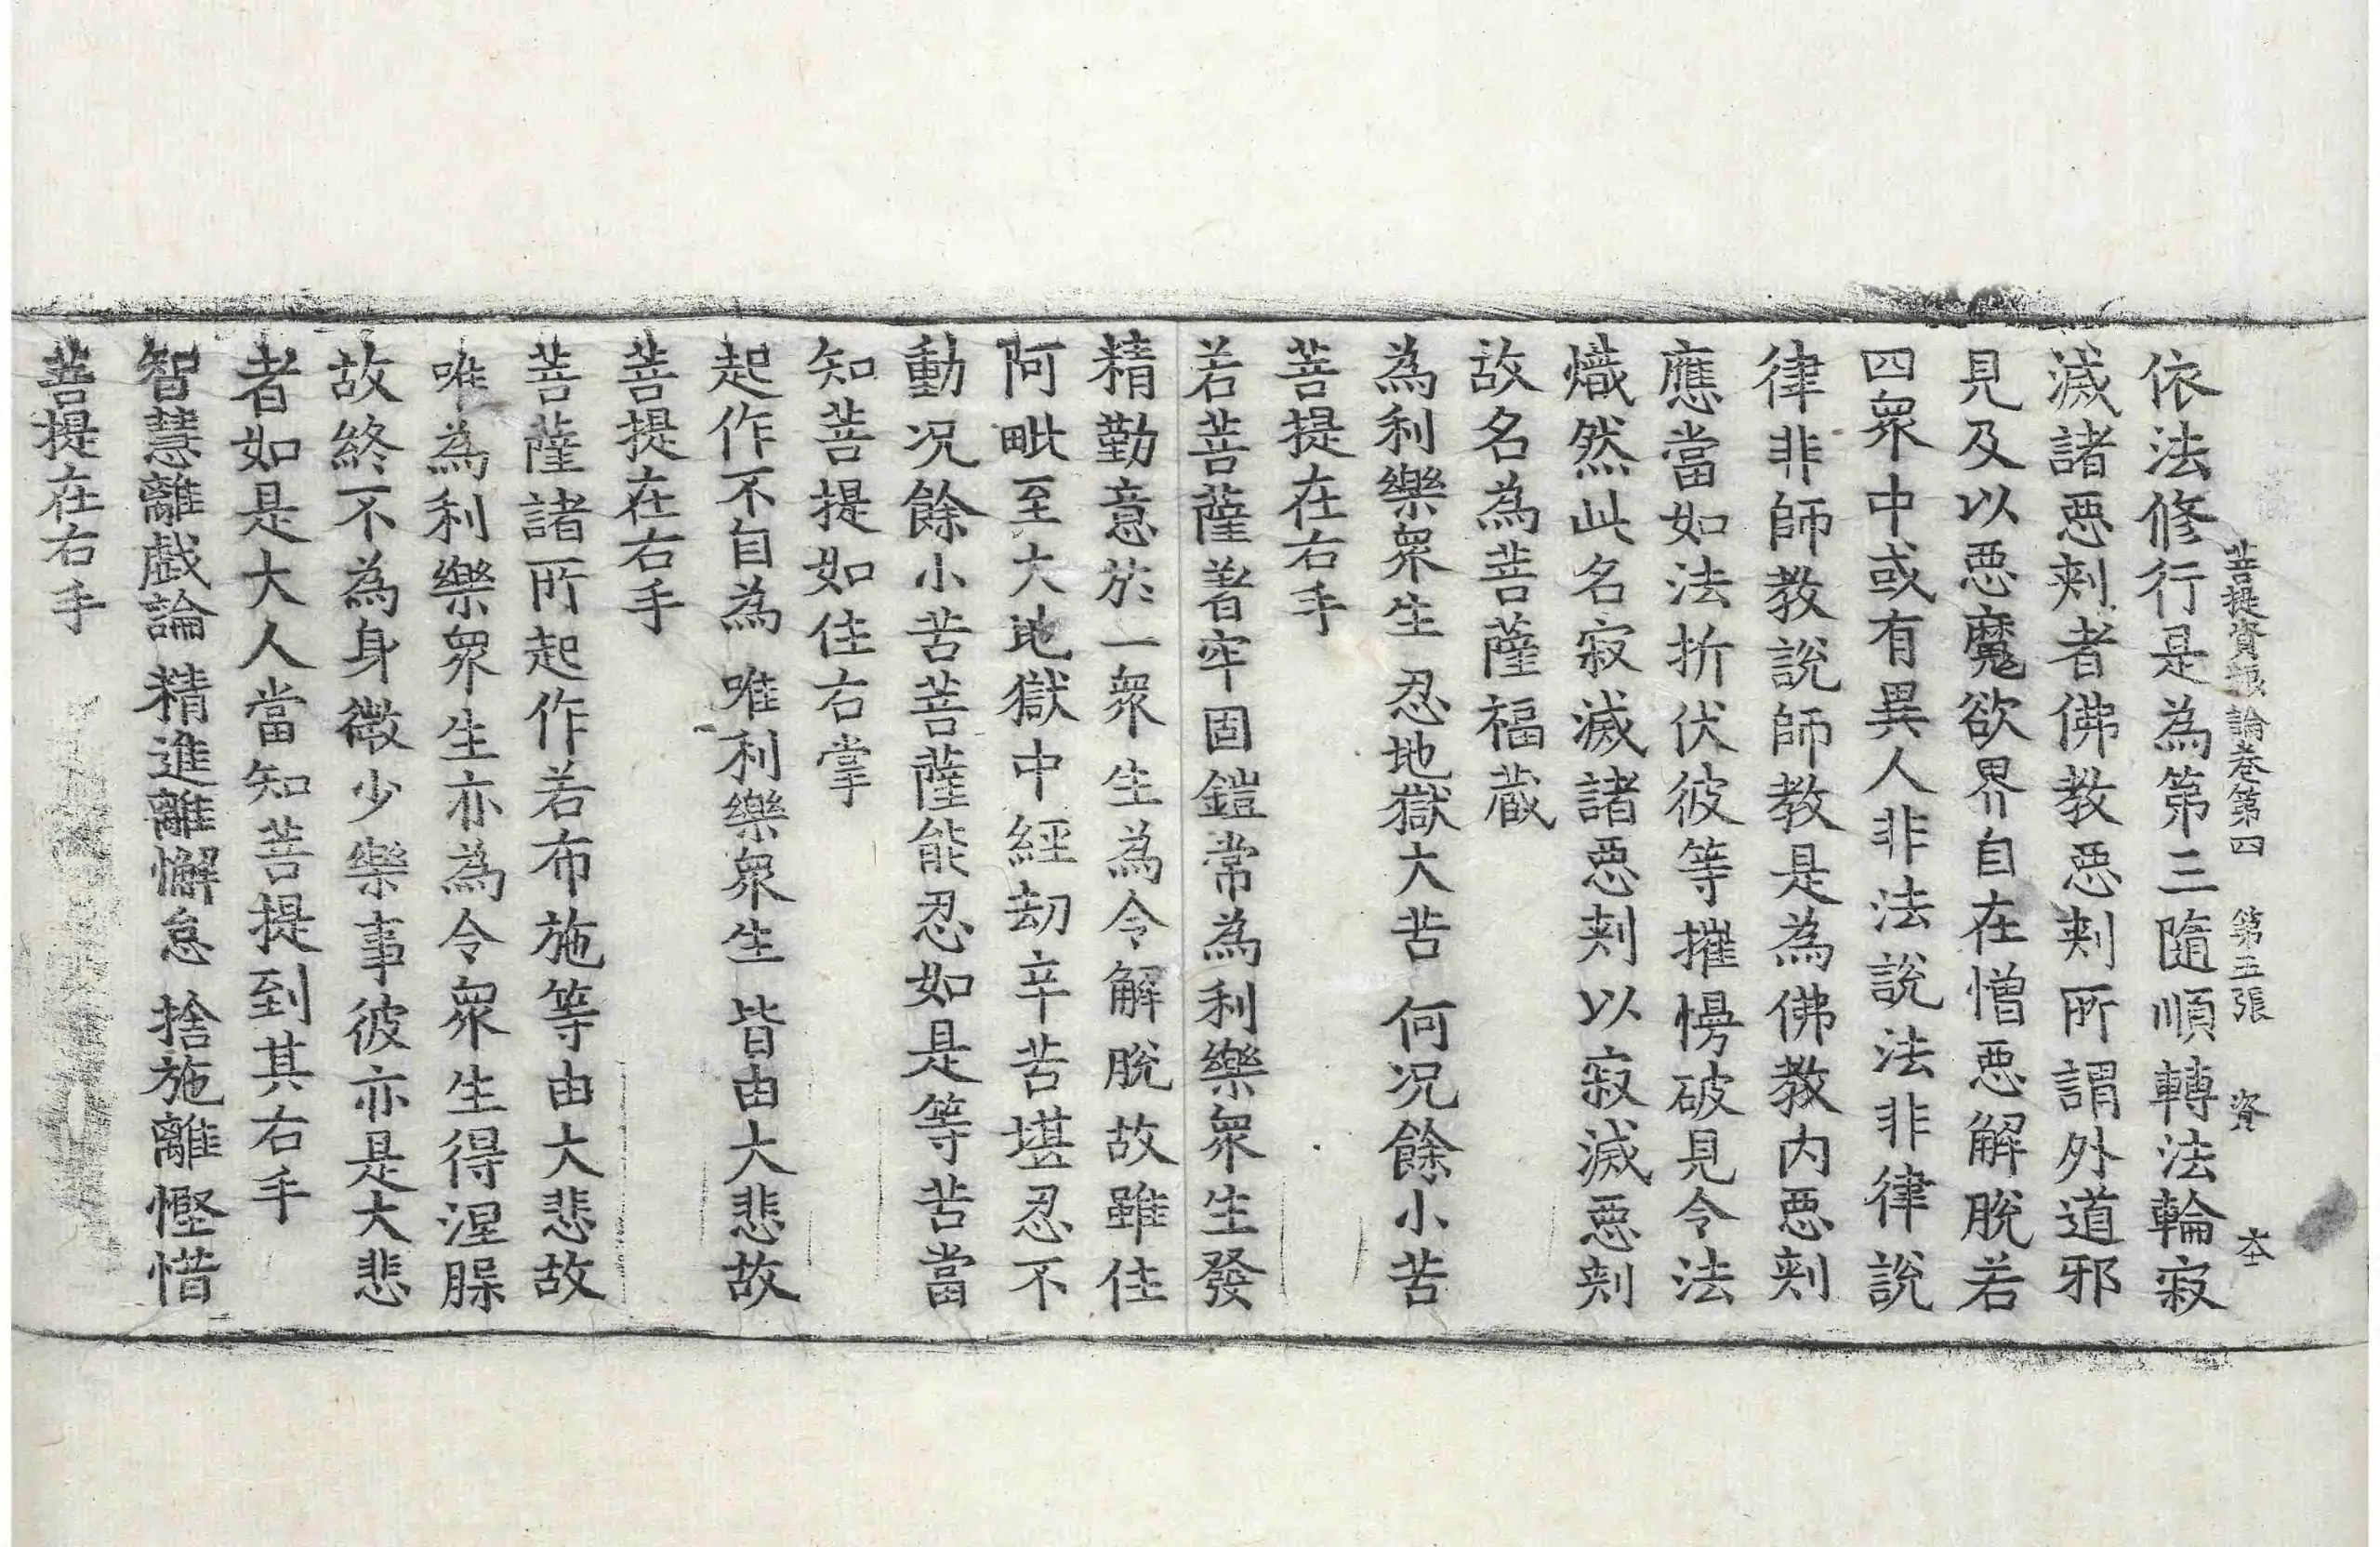 菩提資糧論卷第四　第五張　資　大
依法修行是為第三隨順轉法輪寂
滅諸惡刾者佛教惡刾所謂外道邪
見及以惡魔欲界自在憎惡解脫若
四衆中或有異人非法說法非律說
律非師教說師教是為佛教內惡刾
應當如法折伏彼等摧慢破見令法
熾然此名寂滅諸惡刾以寂滅惡刾
故名為菩薩福蔵
為利樂衆生　忍地獄大苦　何况餘小苦
菩提在右手
若菩薩著牢固鎧常為利樂衆生發
精勤意於一衆生為令解脫故雖住
阿毗至大地獄中經劫辛苦堪忍不
動况餘小苦菩薩能忍如是等苦當
知菩提如住右掌
起作不自為　唯利樂衆生　皆由大悲故
菩提在右手
菩薩諸所起作若布施等由大悲故
唯為利樂衆生亦為令衆生得涅槃
故終不為身微少樂事彼亦是大悲
者如是大人當知菩提到其右手
智慧離戲論　精進離懈怠　捨施離慳惜
菩提在右手